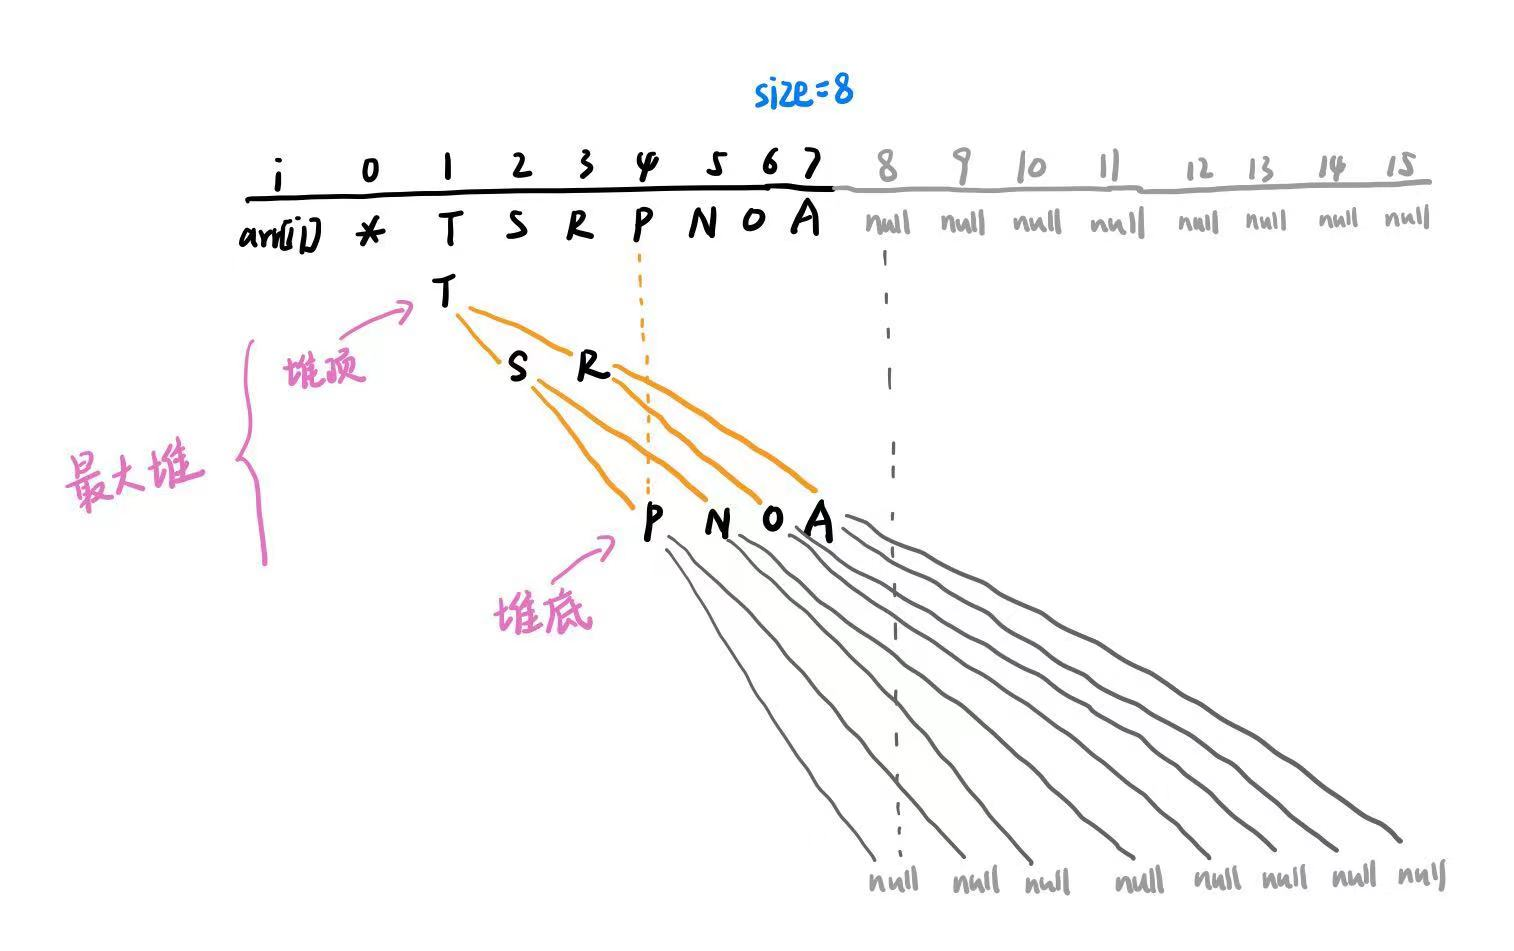 size=8
i 0 1 2 3 4 5 6 7 8 9 10 11 12 13 14 15
arr[i] * T S R P N O A null null null null null null null null
T
堆顶
S R
最大堆
P N O A
堆底
null null null null null null null null